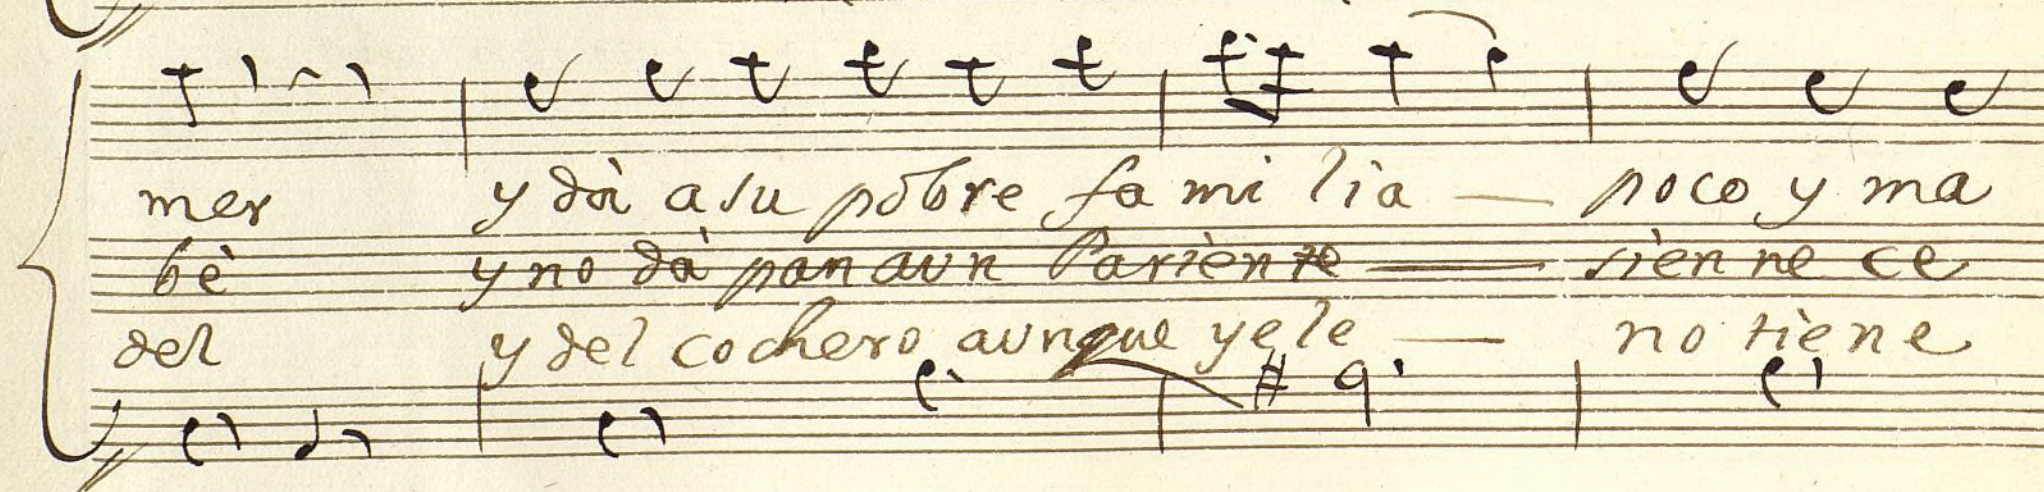 mer y dà a su pobre fa mi lia — poco y ma
bè y no dà pan a un Pariènte — sièn ne ce
del y del cochero aunque yele — no tiene